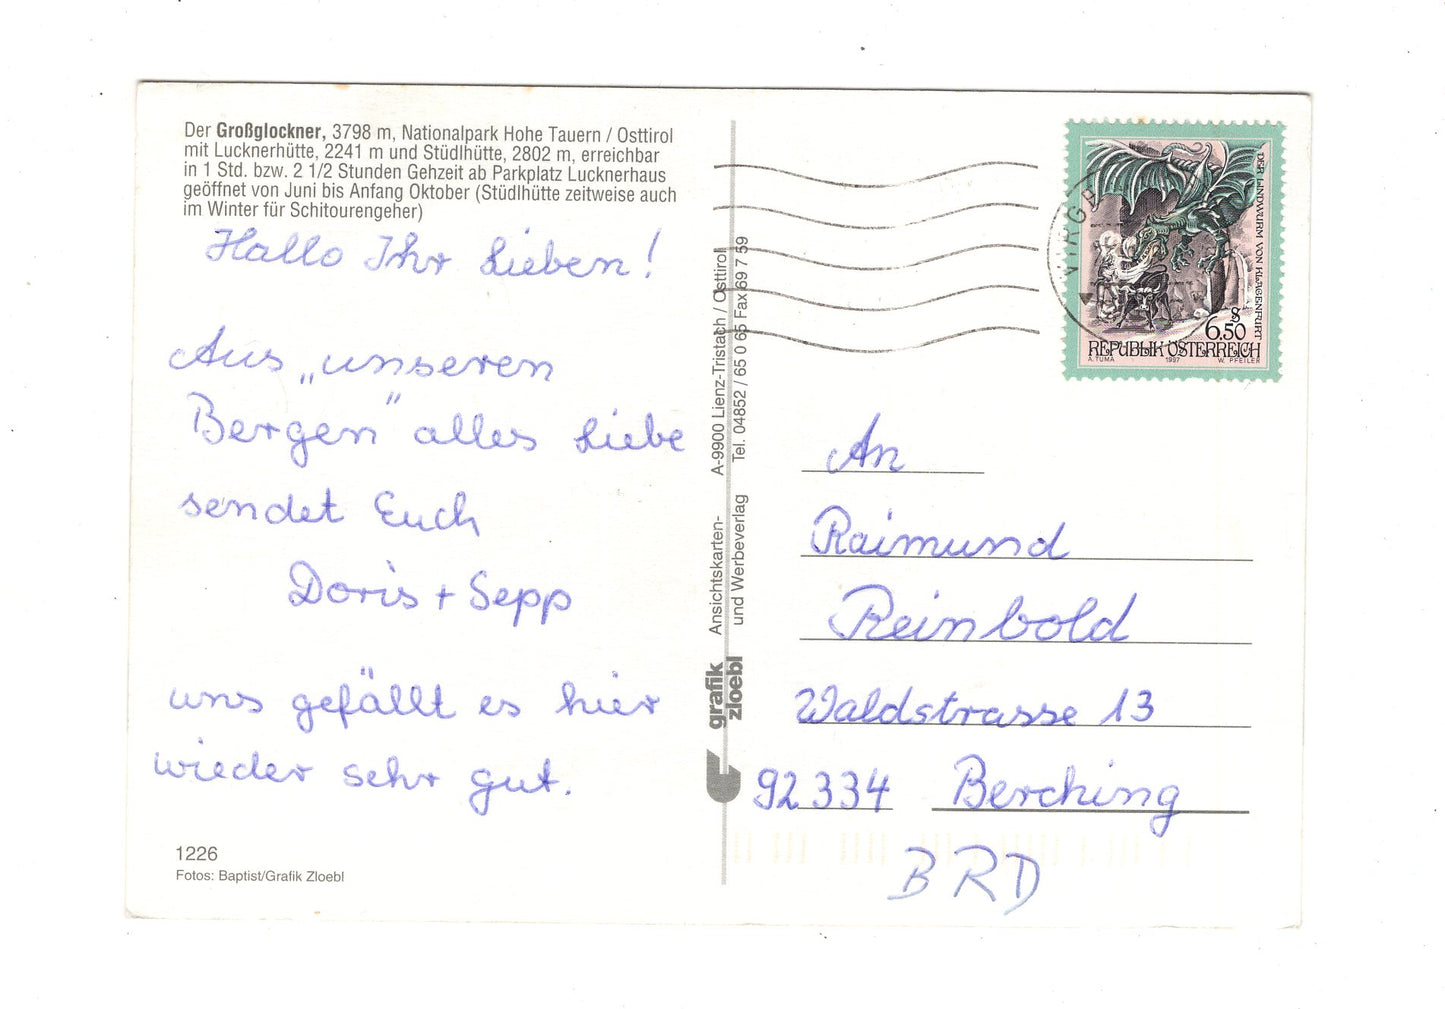 Der Großglockner, 3798 m, Nationalpark Hohe Tauern / Osttirol
mit Lucknerhütte, 2241 m und Stüdlhütte, 2802 m, erreichbar
in 1 Std. bzw. 2 1/2 Stunden Gehzeit ab Parkplatz Lucknerhaus
geöffnet von Juni bis Anfang Oktober (Stüdlhütte zeitweise auch
im Winter für Schitourengeher)
Hallo Ihr Lieben!
Aus „unseren
Bergen" alles Liebe
sendet Euch
Doris + Sepp
uns gefällt es hier
wieder sehr gut.
1226
Fotos: Baptist/Grafik Zloebl
grafik
zloebl
Ansichtskarten-
und Werbeverlag
A-9900 Lienz-Tristach / Osttirol
Tel. 04852 / 65 0 65 Fax 69 7 59
DER LINDWURM VON KLAGENFURT
S
6.50
REPUBLIK ÖSTERREICH
A. TUMA 1997 W. PFEILER
An
Raimund
Reinbold
Waldstrasse 13
92334 Berching
BRD